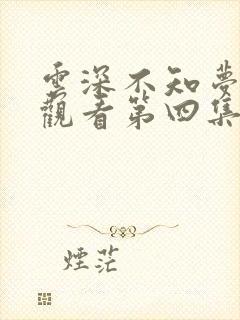 雲深不知夢
觀看第四集
煙茫